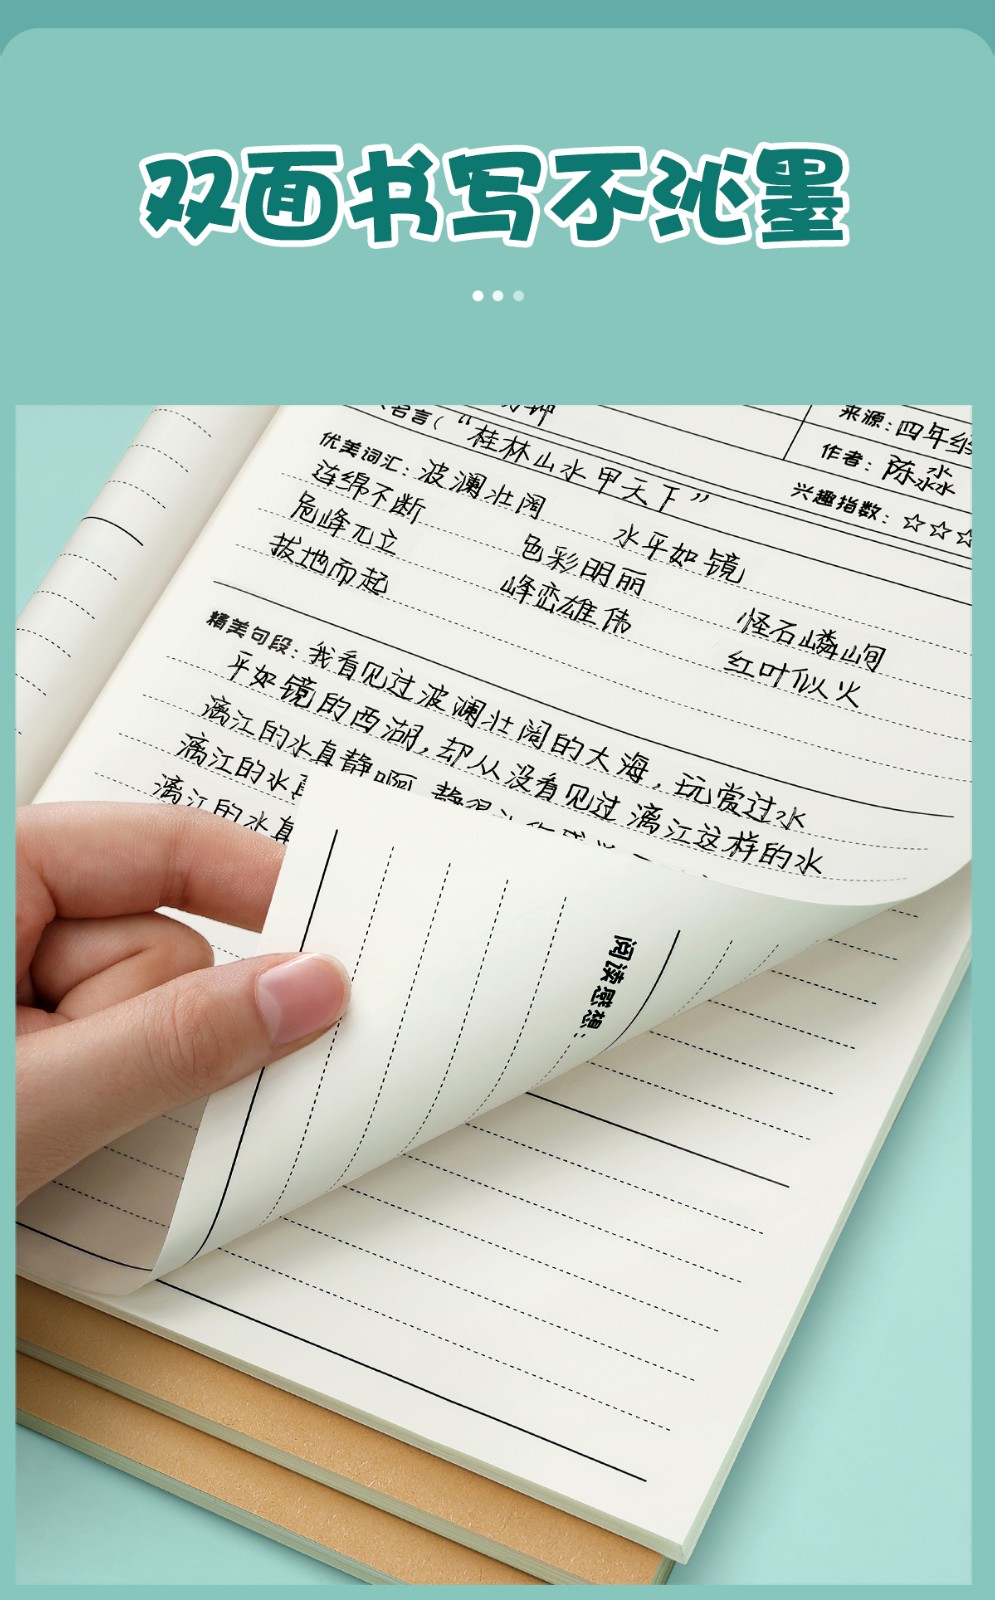 双面书写不沁墨
来源:四年级
名言(“桂林山水甲天下”
作者:陈淼
兴趣指数:☆☆☆
优美词汇:波澜壮阔 水平如镜
连绵不断 色彩明丽 怪石嶙峋
危峰兀立 峰峦雄伟 红叶似火
拔地而起
精美句段:我看见过波澜壮阔的大海,玩赏过水
平如镜的西湖,却从没看见过漓江这样的水
漓江的水真静啊
漓江的水真
漓江的水真
阅读感想: